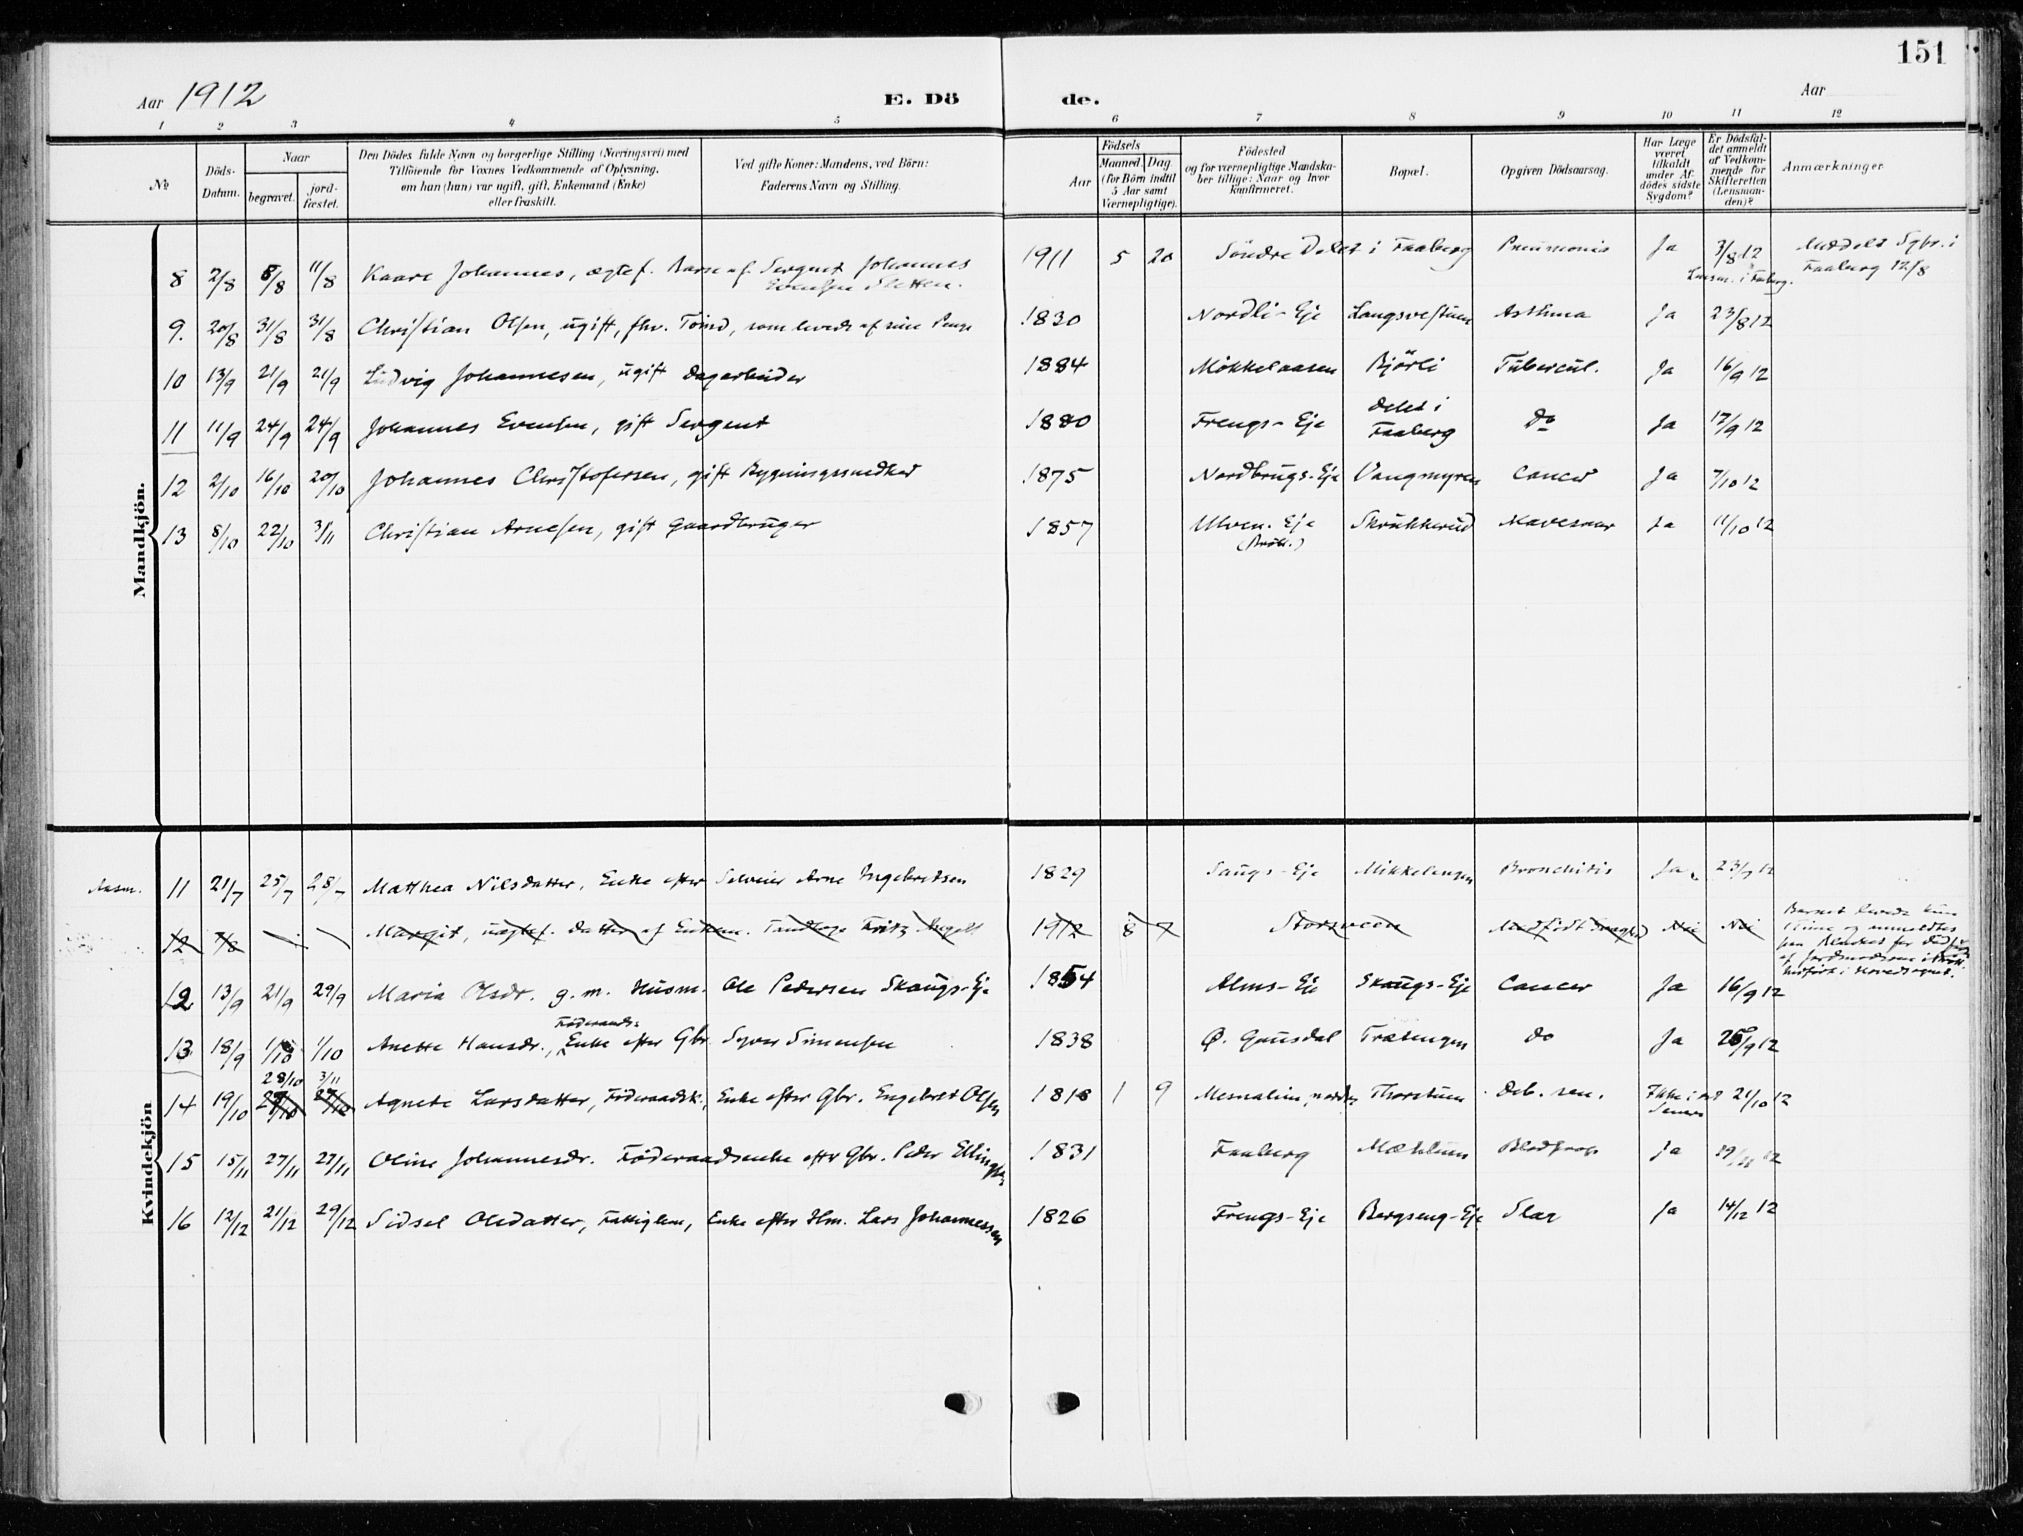 151
Aar 1912
E. Dö
de.
Aar
1 2 3 4 5 6 7 8 9 10 11 12
№
Döds-
Datum.
Naar
begravet.
jord-
fæstet.
Den Dödes fulde Navn og borgerlige Stilling (Næringsvei) med
Tilföiende for Voxnes Vedkommende af Oplysning,
om han (hun) var ugift, gift, Enkemand (Enke)
eller fraskilt.
Ved gifte Koner: Mandens, ved Börn:
Faderens Navn og Stilling.
Födsels
Aar
Maaned. Dag
(for Börn indtil
5 Aar samt
Værnepligtige).
Födested
og for værnepligtige Mandska-
ber tillige: Naar og hvor
konfirmeret.
Bopæl.
Opgiven Dödsaarsag.
Har Læge
været
tilkaldt
under Af-
dödes sidste
Sygdom?
Er Dödsfal-
det anmeldt
af Vedkom-
mende for
Skifteretten
(Lensman-
den)?
Anmærkninger
Mandkjön.
8 2/8 8/8 11/8 Kaare Johannes, ægtef. Barn af Sergent Johannes
Evensen Sletten.
1911 5 20 Söndre Delet i Faaberg Pneumonia Ja 3/8 12
Lensm. i Faaberg.
Meddelt Sgbr. i
Faaberg 12/8
9. 20/8 31/8 31/8 Christian Olsen, ugift, fhv. Tömd, som levede af sine Penge 1830 Nordli-Eje Langsvestuen Asthma Ja 23/8 12
10 13/9 21/9 21/9 Ludvig Johannesen, ugift Dagarbeider 1884 Mikkelaasen Bjørli Tubercul. Ja 16/9 12
11 11/9 24/9 24/9 Johannes Evensen, gift Sergent 1880 Frengs-Eje Delet i
Faaberg Do Ja 17/9 12
12 2/10 16/10 20/10 Johannes Christofersen, gift Bygningssnedker 1875 Nordbrugs-Eje Vangmyren Cancer Ja 7/10 12
13 8/10 22/10 3/11 Christian Arnesen, gift Gaardbruger 1857 Ulven-Eje Skrukkerud Mavesaar Ja 11/10 12
Kvindekjön
11 21/7 25/7 28/7 Matthea Nilsdatter, Enke efter Selveier Arne Ingebretsen 1829 Saugs-Eje Mikkelengen Bronchitis Ja 23/7 12
12 7/8 Margit, uægtef. Datter af 1912 8 7 Nei Nei
Barnet levede kun
12 13/9 21/9 29/9 Maria Olsdr. g. m. Husm. Ole Pedersen Skaugs-Eje 1854 Alms-Eje Skaugs-Eje Cancer Ja 16/9 12
Föderaads-
13 18/9 1/10 1/10 Anette Hansdr., Enke efter Gbr. Syver Simensen 1838 Ø. Gausdal Trætengen do Ja 25/9 12
28/10 3/11
14 19/10 27/10 27/10 Agnete Larsdatter, Föderaadsk., Enke efter Gbr. Engebret Olsen 1818 1 9 Mesnalien, Thorstuen Deb. sen. Ikke i det
Senere 21/10 12
15 15/11 27/11 27/11 Oline Johannesdr. Föderaadsenke eftr Gbr. Peder Ellingsen 1831 Faaberg Mæhlum Ja 19/11 12
16 12/12 21/12 29/12 Sidsel Olsdatter, Fattiglem, Enke efter Hm. Lars Johannessen 1826 Frengs-Eje Bergseng-Eje Slag Ja 14/12 12